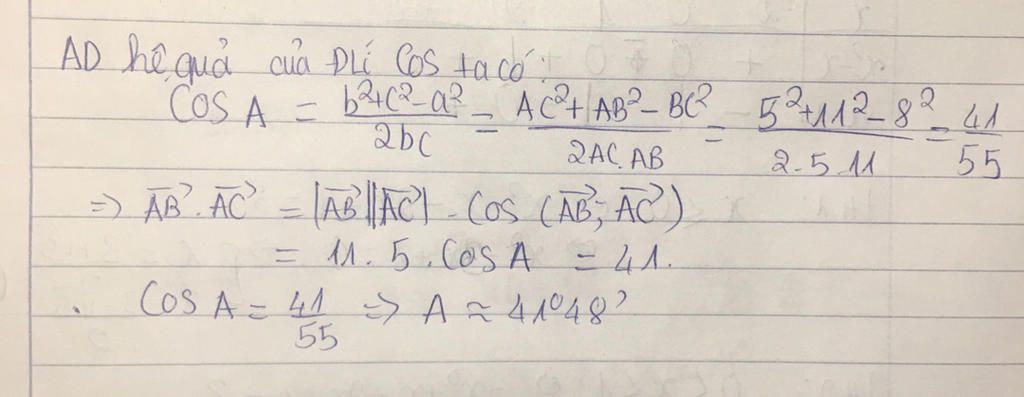 AD hệ quả của ĐLí Cos ta có:
Cos A = \frac{b²+c²-a²}{2bc} = \frac{AC²+AB²-BC²}{2AC.AB} = \frac{5²+11²-8²}{2.5.11} = \frac{41}{55}
=> \overrightarrow{AB}.\overrightarrow{AC} = |\overrightarrow{AB}||\overrightarrow{AC}|.Cos(\overrightarrow{AB};\overrightarrow{AC})
= 11.5.Cos A = 41.
. Cos A = \frac{41}{55} => A ≈ 41°48'